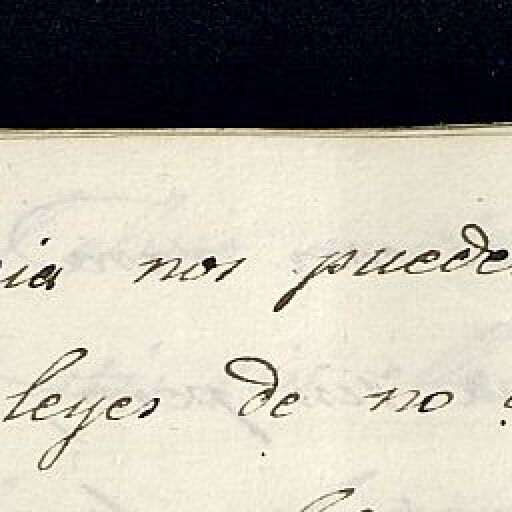 ia nos puede
leyes de no